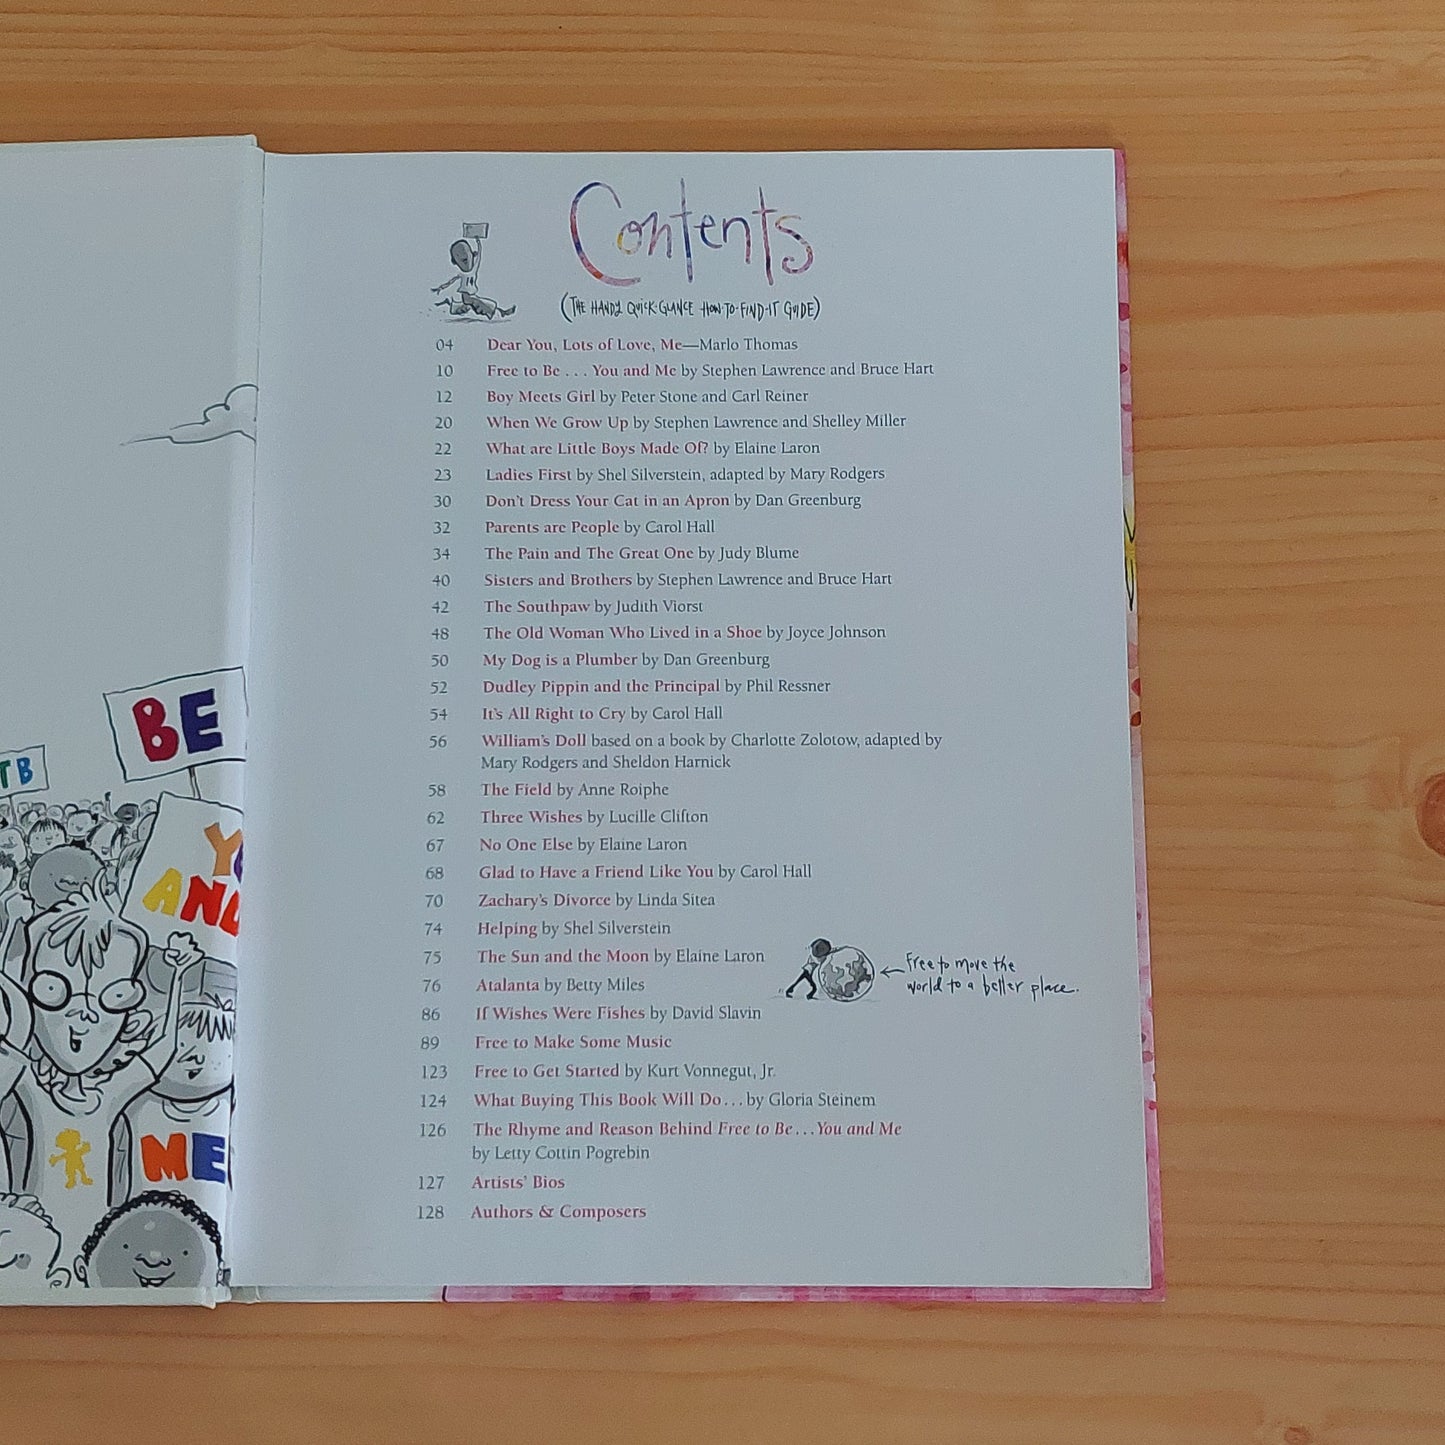 Contents
(THE HANDY QUICK-GLANCE HOW-TO-FIND-IT GUIDE)
04 Dear You, Lots of Love, Me—Marlo Thomas
10 Free to Be . . . You and Me by Stephen Lawrence and Bruce Hart
12 Boy Meets Girl by Peter Stone and Carl Reiner
20 When We Grow Up by Stephen Lawrence and Shelley Miller
22 What are Little Boys Made Of? by Elaine Laron
23 Ladies First by Shel Silverstein, adapted by Mary Rodgers
30 Don't Dress Your Cat in an Apron by Dan Greenburg
32 Parents are People by Carol Hall
34 The Pain and The Great One by Judy Blume
40 Sisters and Brothers by Stephen Lawrence and Bruce Hart
42 The Southpaw by Judith Viorst
48 The Old Woman Who Lived in a Shoe by Joyce Johnson
50 My Dog is a Plumber by Dan Greenburg
52 Dudley Pippin and the Principal by Phil Ressner
54 It's All Right to Cry by Carol Hall
56 William's Doll based on a book by Charlotte Zolotow, adapted by
Mary Rodgers and Sheldon Harnick
58 The Field by Anne Roiphe
62 Three Wishes by Lucille Clifton
67 No One Else by Elaine Laron
68 Glad to Have a Friend Like You by Carol Hall
70 Zachary's Divorce by Linda Sitea
74 Helping by Shel Silverstein
75 The Sun and the Moon by Elaine Laron
76 Atalanta by Betty Miles
86 If Wishes Were Fishes by David Slavin
89 Free to Make Some Music
123 Free to Get Started by Kurt Vonnegut, Jr.
124 What Buying This Book Will Do . . . by Gloria Steinem
126 The Rhyme and Reason Behind Free to Be . . . You and Me
by Letty Cottin Pogrebin
127 Artists' Bios
128 Authors & Composers
Free to move the
world to a better place.
BE
AND
ME